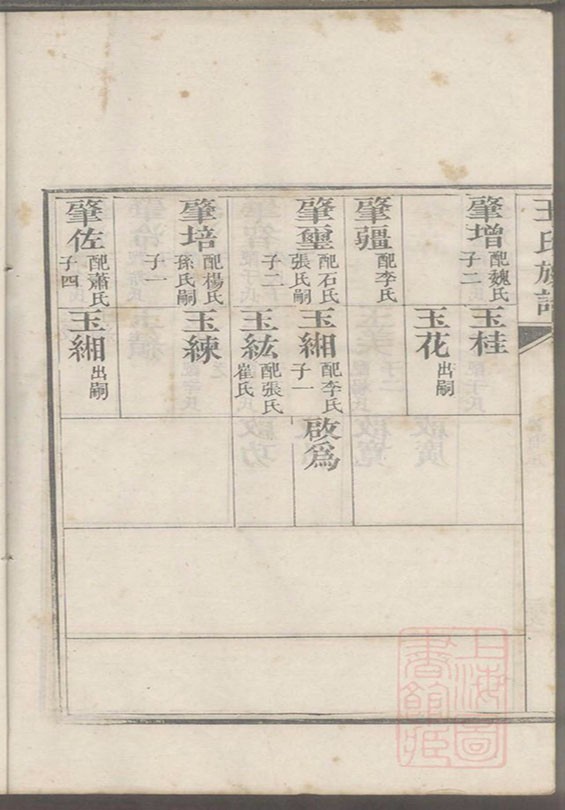 王氏族譜
肇增
配魏氏
子二
玉桂
玉花
出嗣
肇疆
配李氏
肇璽
配石氏
張氏嗣
子二
玉緗
配李氏
子一
啟為
玉紘
配張氏
崔氏
肇培
配楊氏
孫氏嗣
子一
玉練
肇佐
配蕭氏
子四
玉緗
出嗣
上海圖書館藏